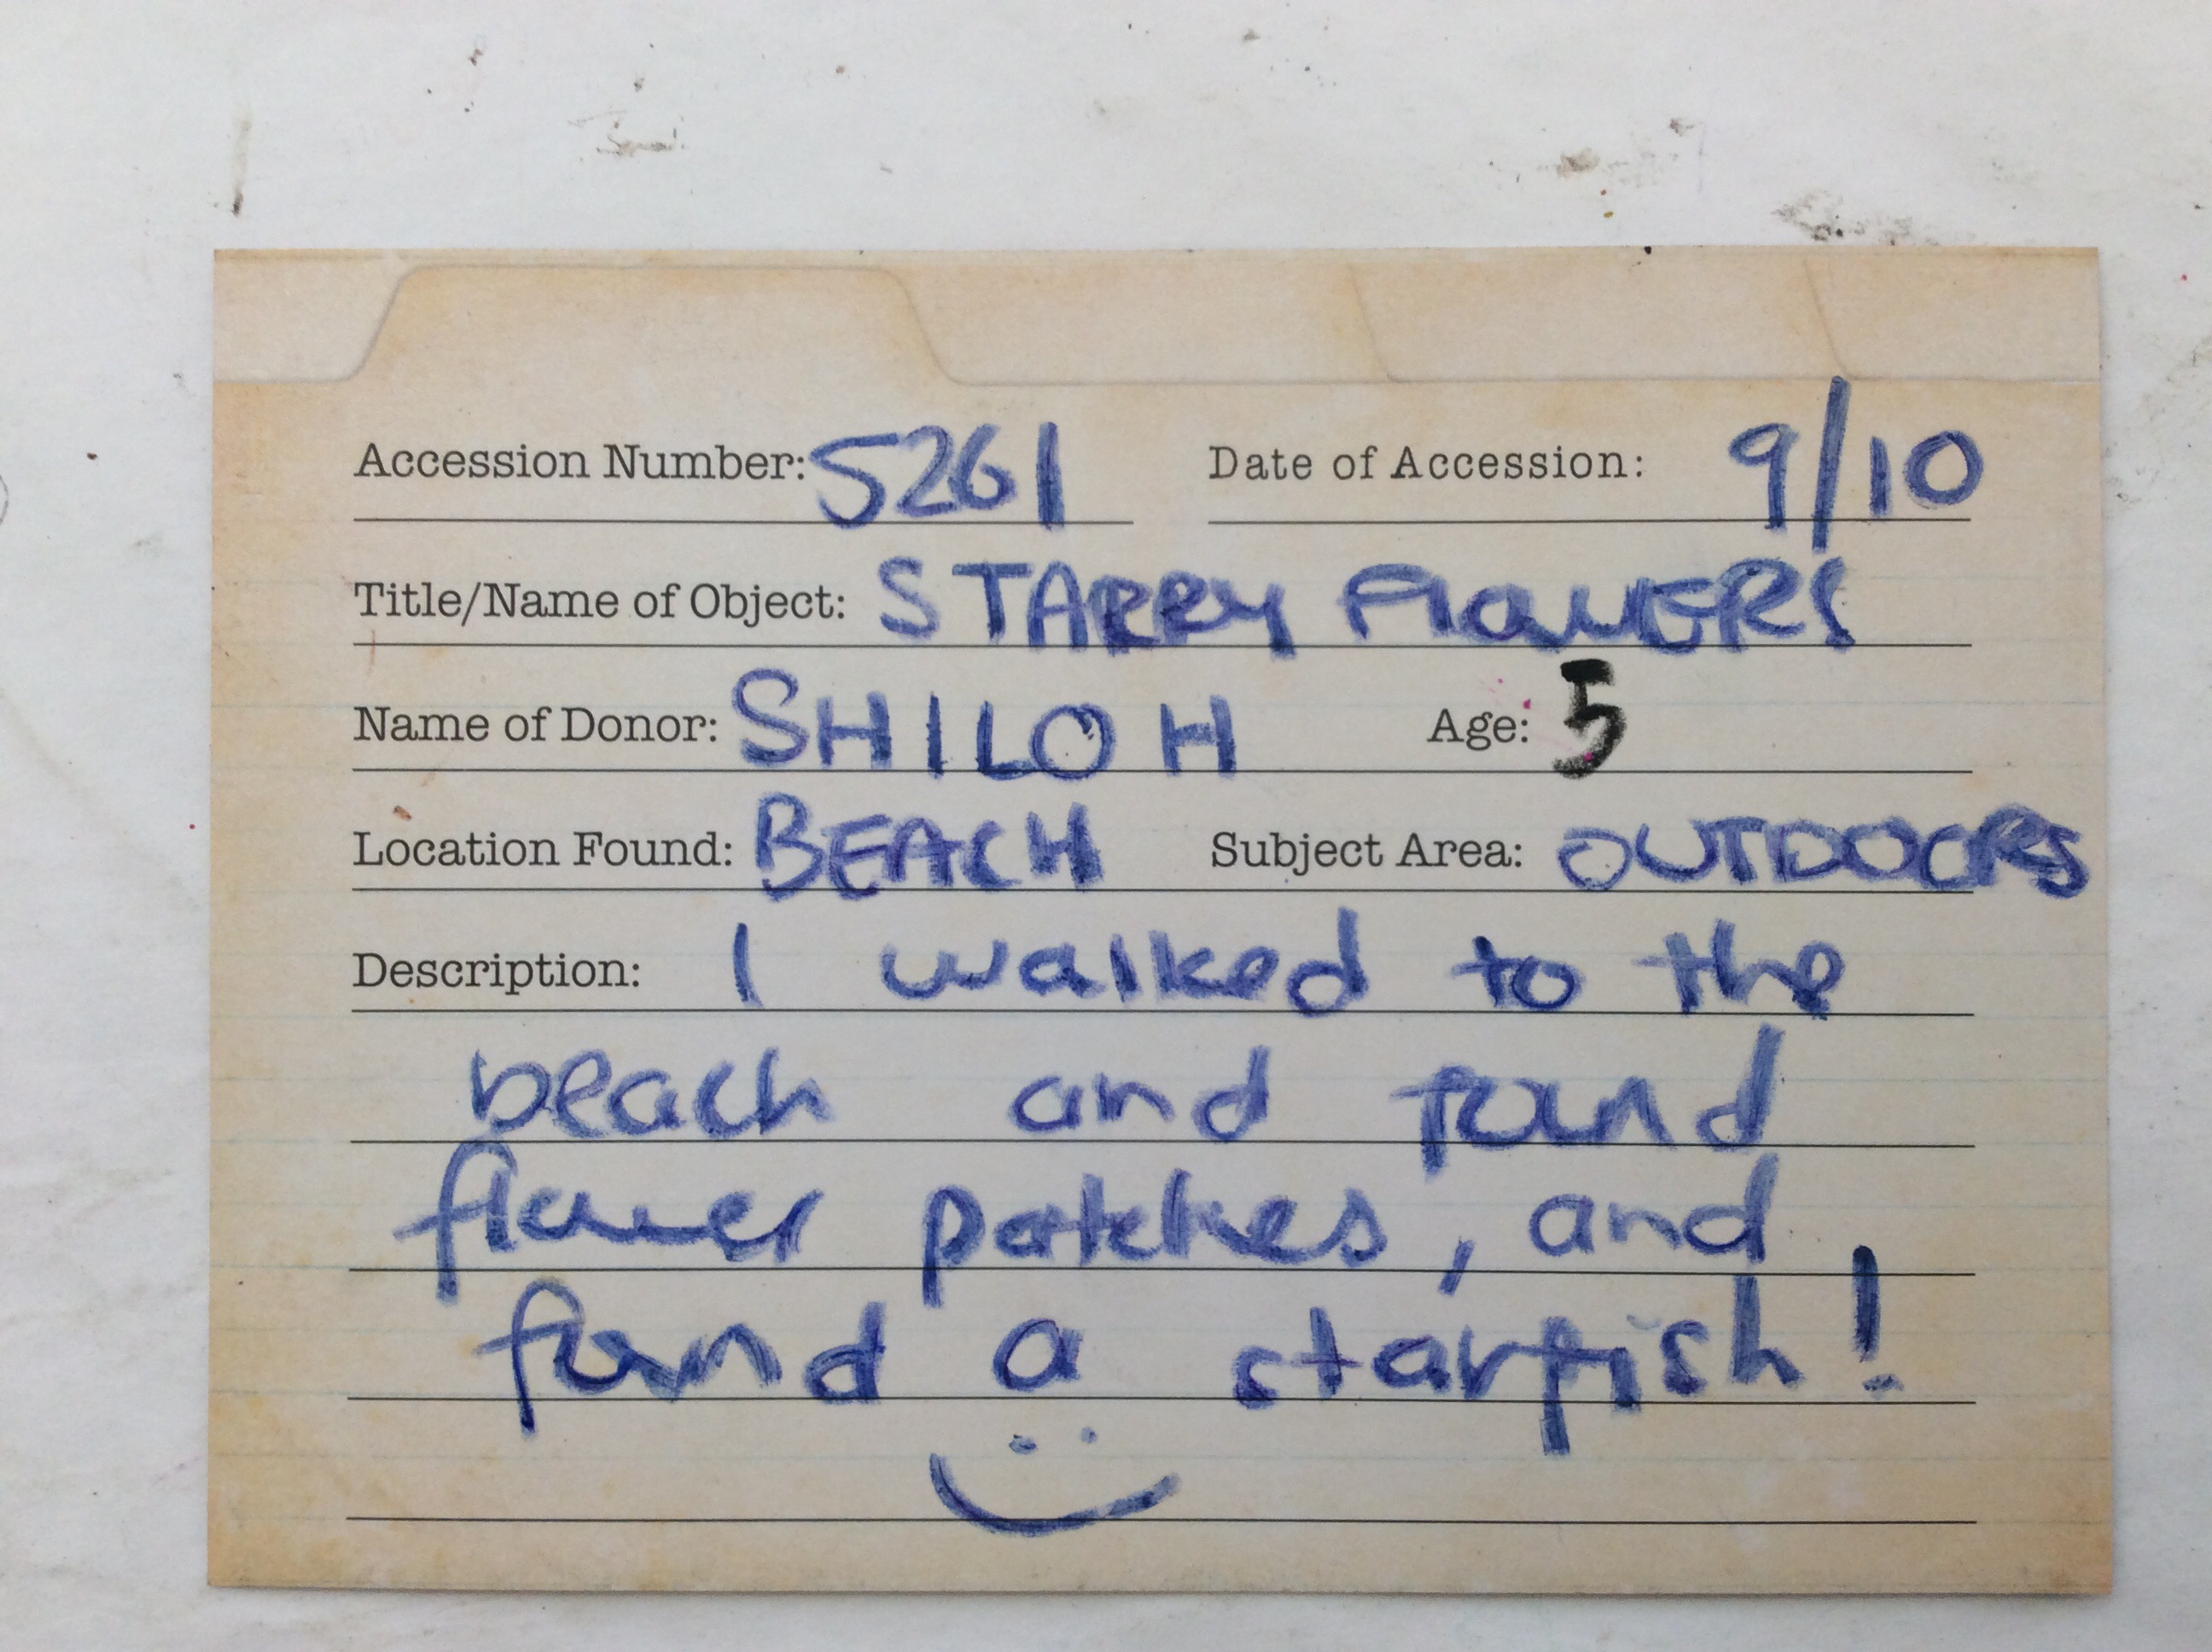 Accession Number: 5261 Date of Accession: 9/10
Title/Name of Object: STARRY FlOWERS
Name of Donor: SHILOH Age: 5
Location Found: BEACH Subject Area: OUTDOORS
Description: I walked to the
beach and found
flower patches, and
found a starfish!